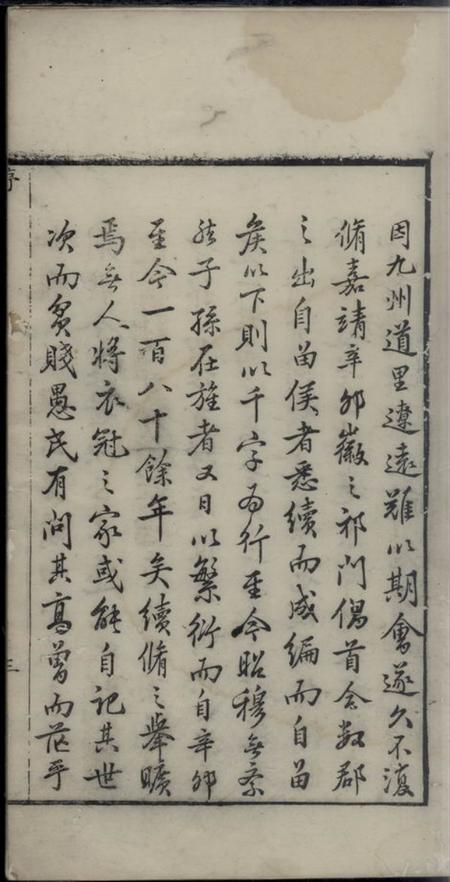 因九州道里遼遠難以期會遂久不復
脩嘉靖辛卯徽之祁門偶首会数郡
之出自留侯者悉續而成編而自留
矦以下則以千字為行至今昭穆無紊
然子孫在旌者又日以繁衍而自辛卯
至今一百八十餘年矣續脩之舉曠
焉無人将衣冠之家或能自記其世
次而貧賤愚民有问其髙曾而茫乎
序
三